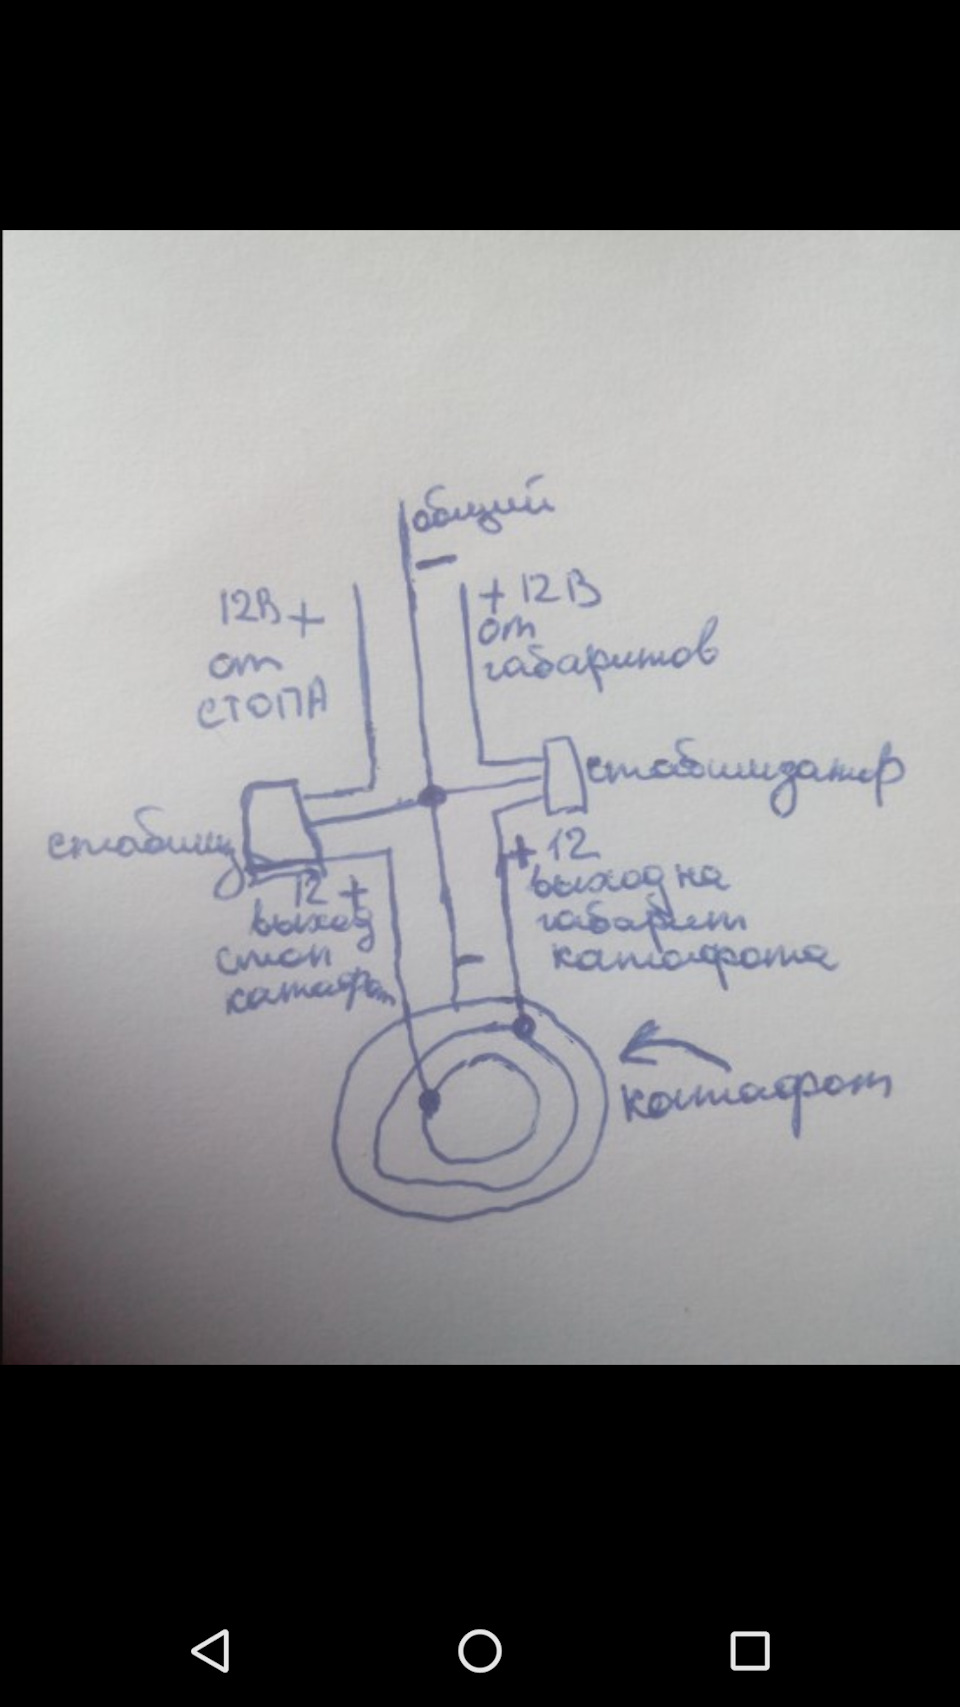 общий
12В +
от
СТОПА
+ 12В
от
габаритов
стабилизатор
стабилиз
12 +
выход
стоп
катафот
+ 12
выход на
габарит
катафота
катафот